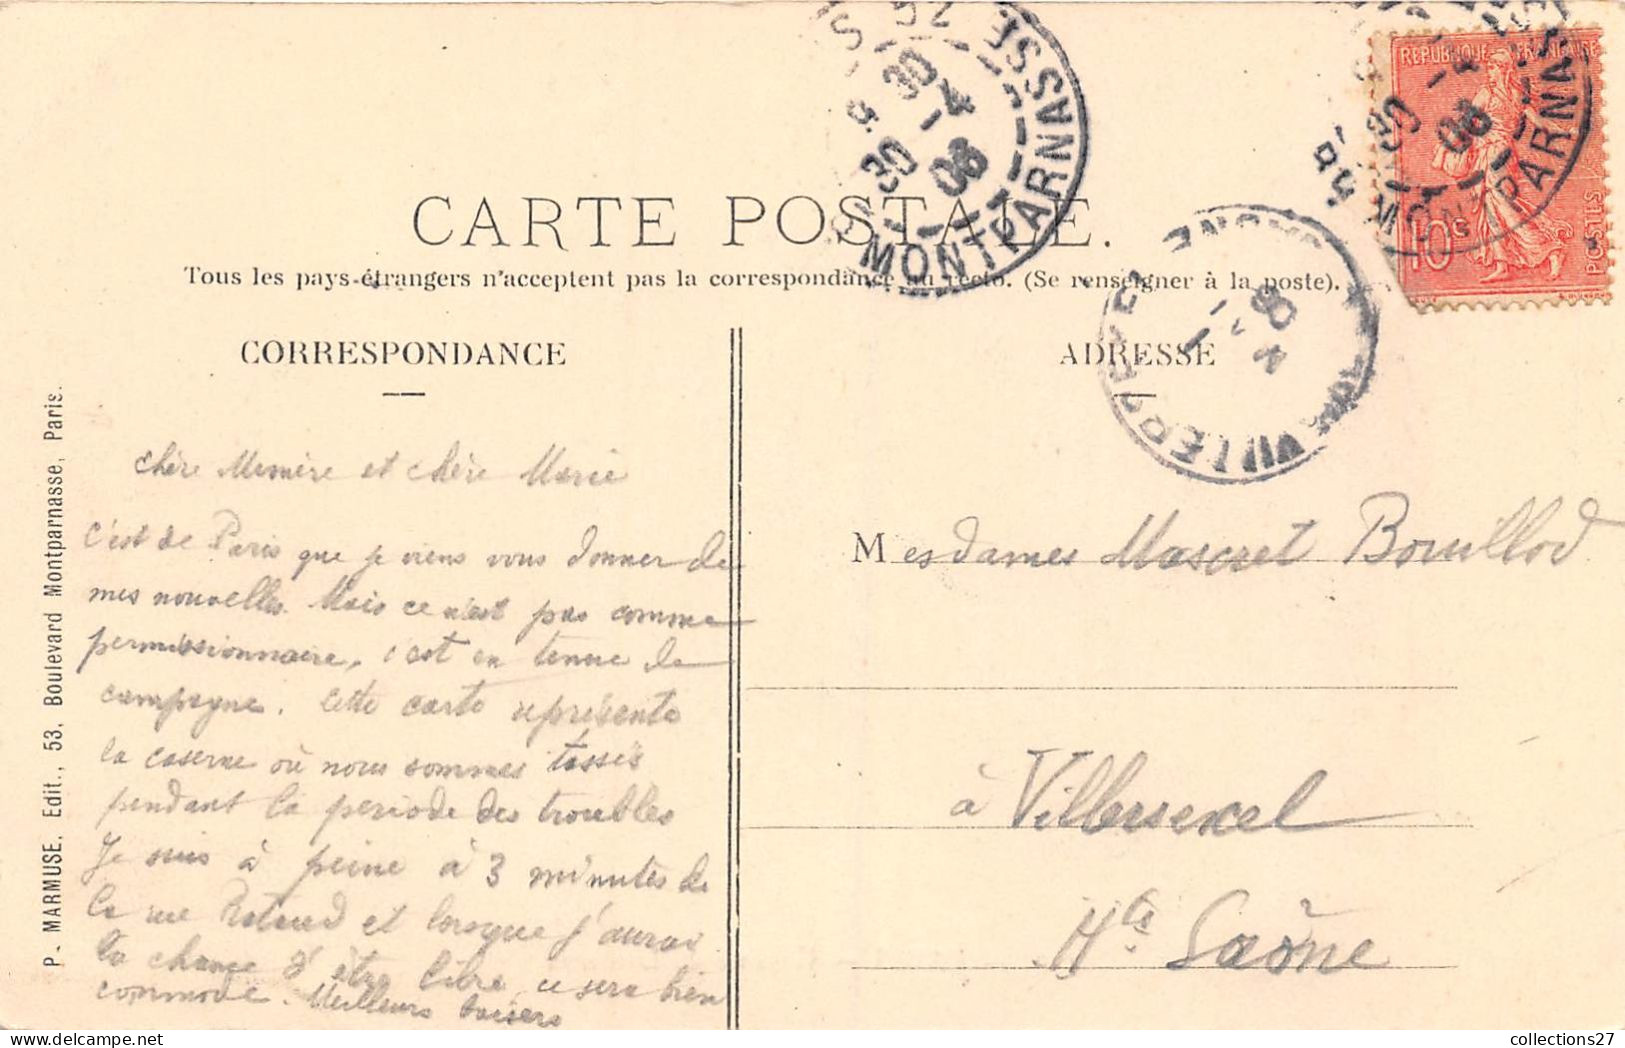 CARTE POSTALE.
Tous les pays étrangers n'acceptent pas la correspondance au recto. (Se renseigner à la poste).
CORRESPONDANCE
chère Memère et chère Marie
c'est de Paris que je viens vous donner de
mes nouvelles. Mais ce n'est pas comme
permissionnaire, c'est en tenue de
campagne. Cette carte représente
la caserne où nous sommes tassés
pendant la période des troubles
Je suis à peine à 3 minutes de
la rue Rataud et lorsque j'aurai
la chance d'être libre, ce sera bien
commode. Meilleurs baisers
P. MARMUSE, Edit., 53, Boulevard Montparnasse, Paris.
ADRESSE
Mesdames Mascret Bouillod
à Villersexel
Hte Saône
REPUBLIQUE FRANÇAISE
10c
POSTES
MONTPARNASSE
30 - 4
06
MONTPARNASSE
06
VILLERSEXEL
collections27